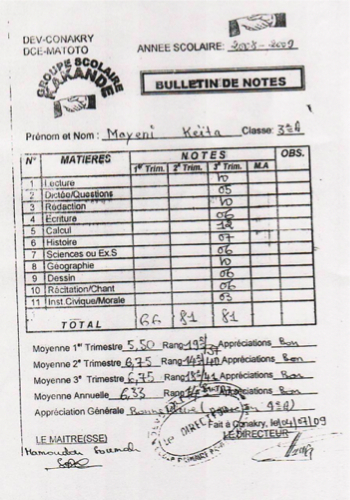 DEV-CONAKRY
DCE-MATOTO
ANNEE SCOLAIRE: 2008-2009
GROUPE SCOLAIRE
KAKANDE
BULLETIN DE NOTES
Prénom et Nom : Mayeni Keïta Classe: 3e A
N° MATIERES NOTES OBS.
1er Trim. 2e Trim. 3e Trim. M.A
1 Lecture 10
2 Dictée/Questions 05
3 Rédaction 10
4 Ecriture 06
5 Calcul 12
6 Histoire 07
7 Sciences ou Ex.S 06
8 Géographie 10
9 Dessin 06
10 Récitation/Chant 06
11 Inst.Civique/Morale 03
TOTAL 66 81 81
Moyenne 1er Trimestre 5,50 Rang Appréciations Bon
Moyenne 2e Trimestre 6,75 Rang Appréciations Bon
Moyenne 3e Trimestre 6,75 Rang Appréciations Bon
Moyenne Annuelle 6,33 Rang Appréciations Bon
Appréciation Générale
Fait à Conakry, le 04/07/09
LE MAITRE(SSE) LE DIRECTEUR
Hamoudou Soumah